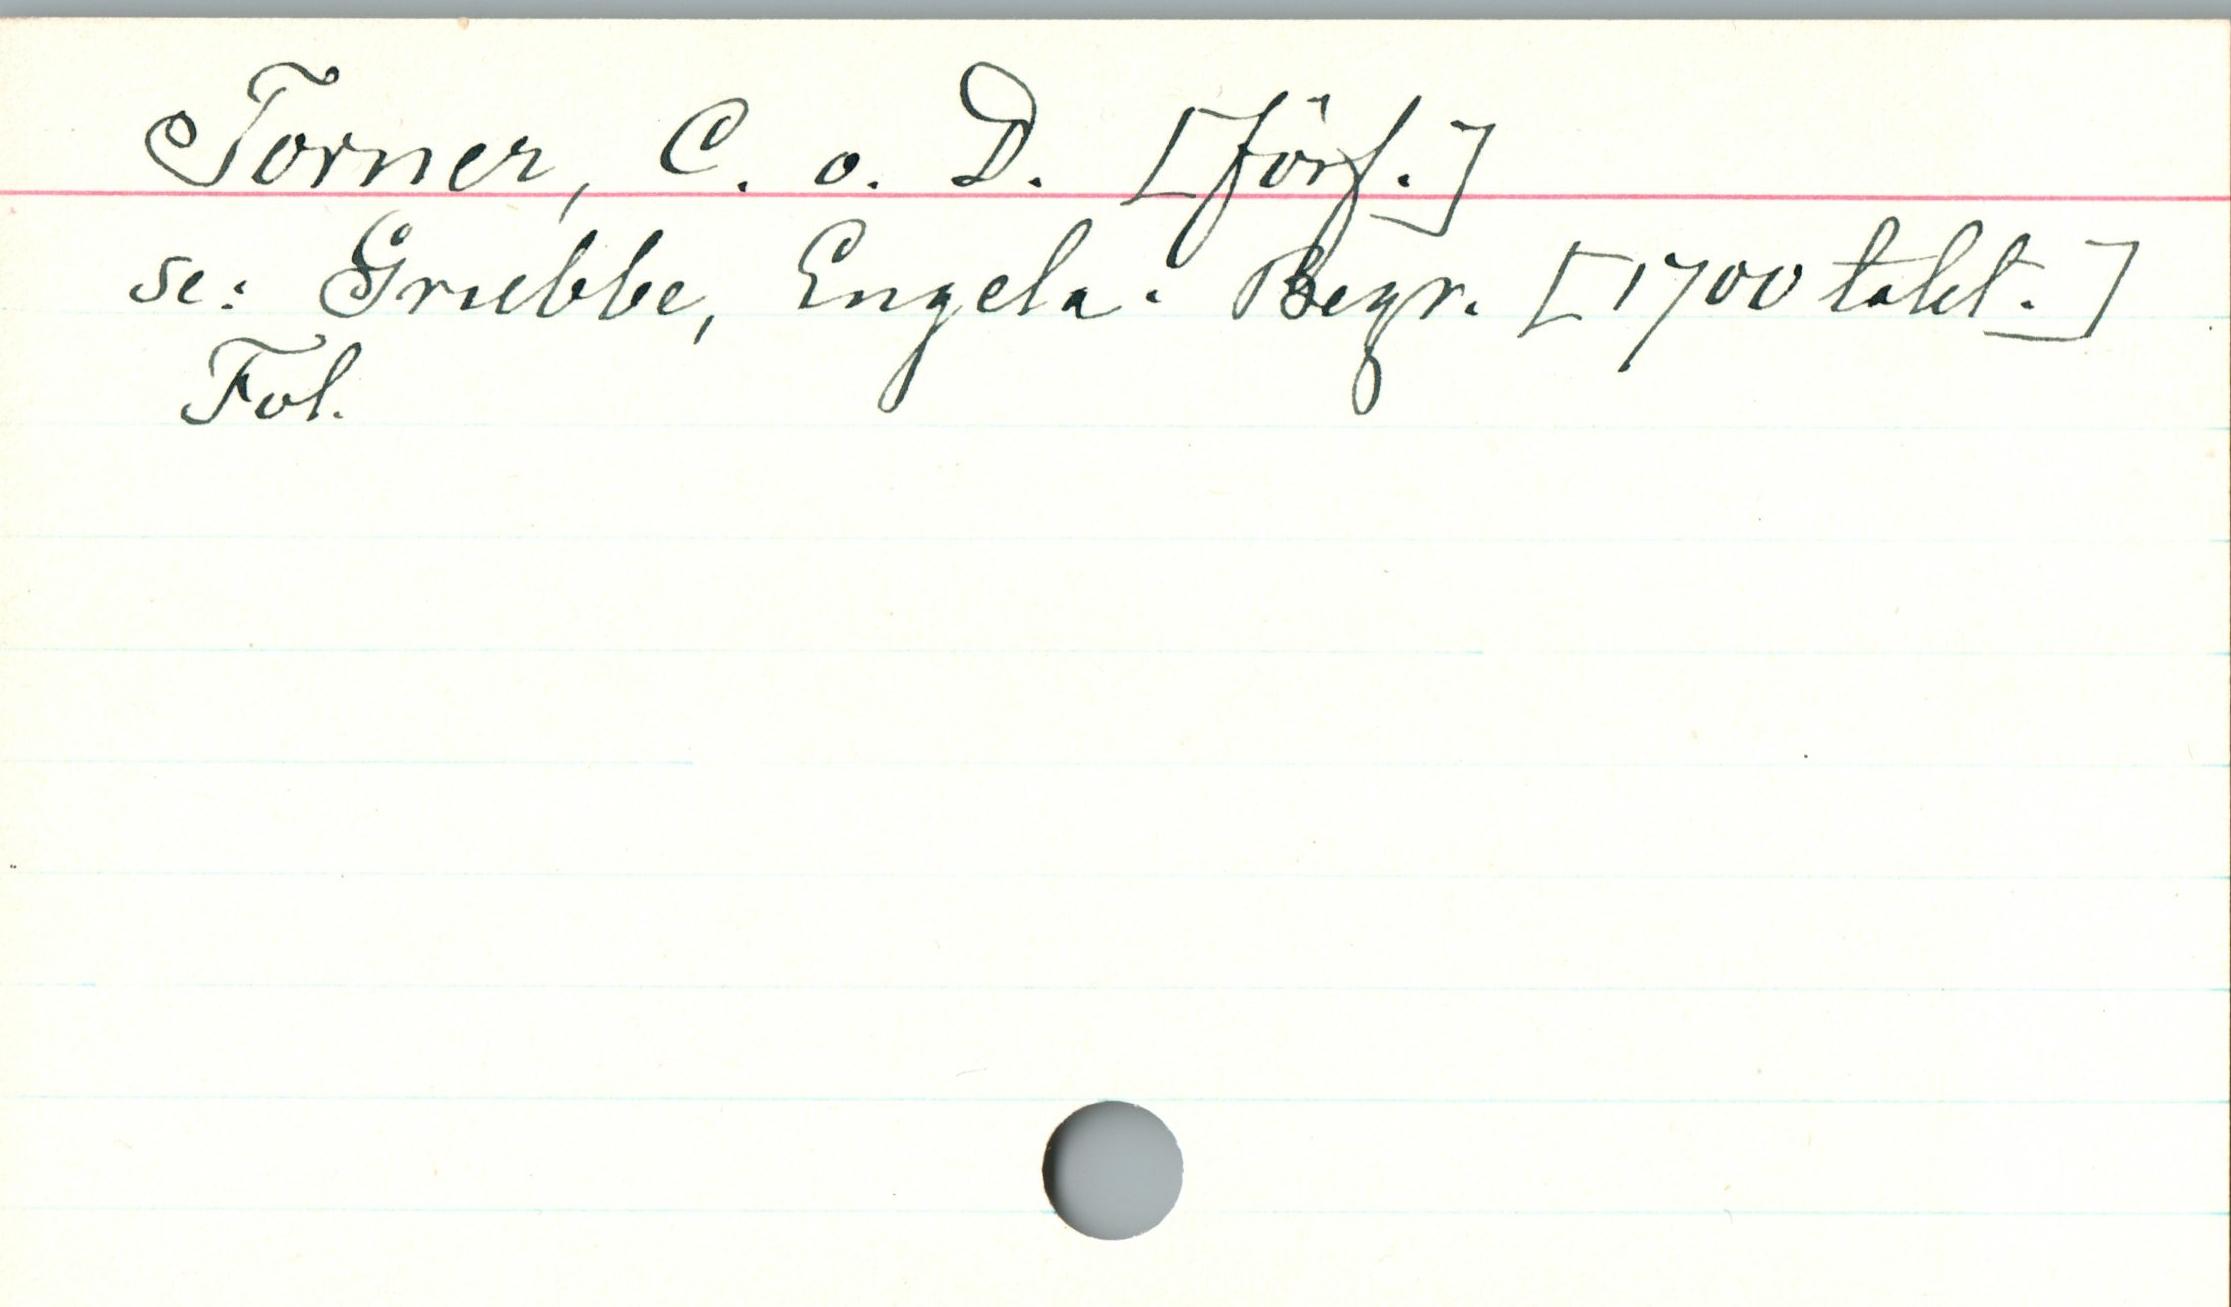 Torner, C. o. D. [förf.]
se: Grubbe, Engela. Begr. [1700 talet.]
Fol.